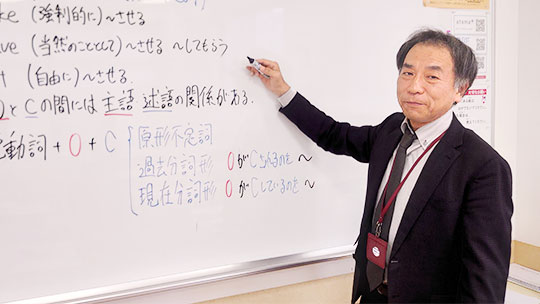 ke (強制的に)~させる
ve (当然のこととして)~させる ~してもらう
t (自由に)~させる.
OとCの間には主語 述語の関係がある.
動詞+O+C
原形不定詞
過去分詞形 OがCされるのを ~
現在分詞形 OがCしているのを ~